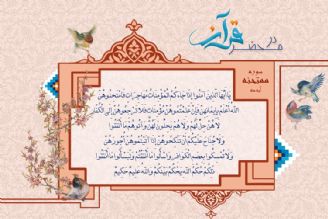 در محضر قرآن
سوره
ممتحنه
يَا أَيُّهَا الَّذِينَ آمَنُوا إِذَا جَاءَكُمُ الْمُؤْمِنَاتُ مُهَاجِرَاتٍ فَامْتَحِنُوهُنَّ
اللَّهُ أَعْلَمُ بِإِيمَانِهِنَّ فَإِنْ عَلِمْتُمُوهُنَّ مُؤْمِنَاتٍ فَلَا تَرْجِعُوهُنَّ إِلَى الْكُفَّارِ
لَا هُنَّ حِلٌّ لَهُمْ وَلَا هُمْ يَحِلُّونَ لَهُنَّ وَآتُوهُمْ مَا أَنْفَقُوا
وَلَا جُنَاحَ عَلَيْكُمْ أَنْ تَنْكِحُوهُنَّ إِذَا آتَيْتُمُوهُنَّ أُجُورَهُنَّ
وَلَا تُمْسِكُوا بِعِصَمِ الْكَوَافِرِ وَاسْأَلُوا مَا أَنْفَقْتُمْ وَلْيَسْأَلُوا مَا أَنْفَقُوا
ذَلِكُمْ حُكْمُ اللَّهِ يَحْكُمُ بَيْنَكُمْ وَاللَّهُ عَلِيمٌ حَكِيمٌ